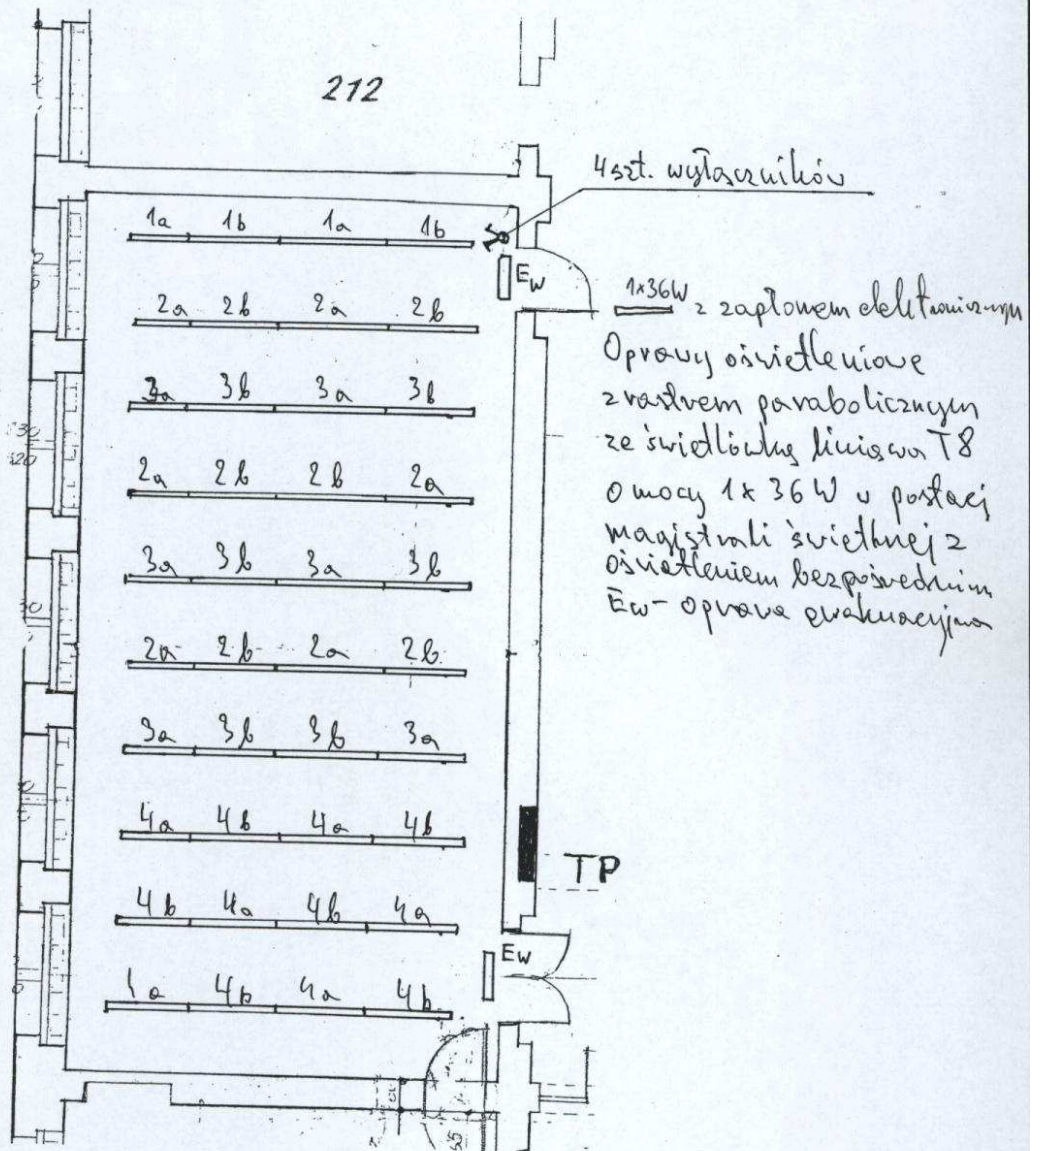 212
4 szt. wyłączników
1a 1b 1a 1b
Ew
1x36W
z zapłonem elektronicznym
2a 2b 2a 2b
Oprawy oświetleniowe
z rastrem parabolicznym
3a 3b 3a 3b
ze świetlówką liniową T8
2a 2b 2b 2a
o mocy 1x36W w postaci
magistrali świetlnej z
oświetleniem bezpośrednim
Ew - oprawa ewakuacyjna
3a 3b 3a 3b
2a 2b 2a 2b
3a 3b 3b 3a
4a 4b 4a 4b
TP
4b 4a 4b 4a
Ew
4a 4b 4a 4b